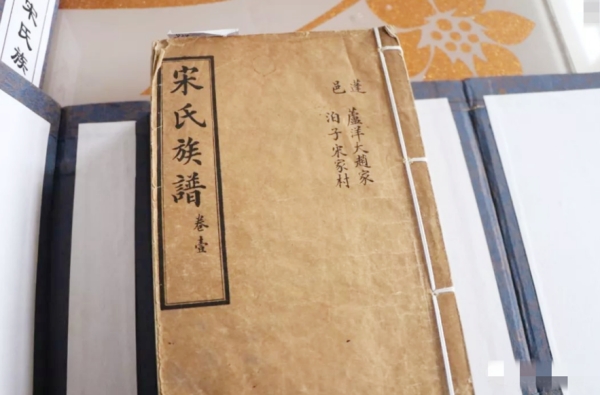 宋氏族譜
卷壹
蓬邑
蘆洋大趙家
泊子宋家村
宋氏族